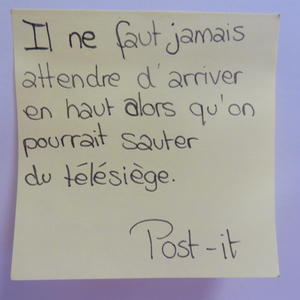 Il ne faut jamais
attendre d'arriver
en haut alors qu'on
pourrait sauter
du télésiège.
Post-it